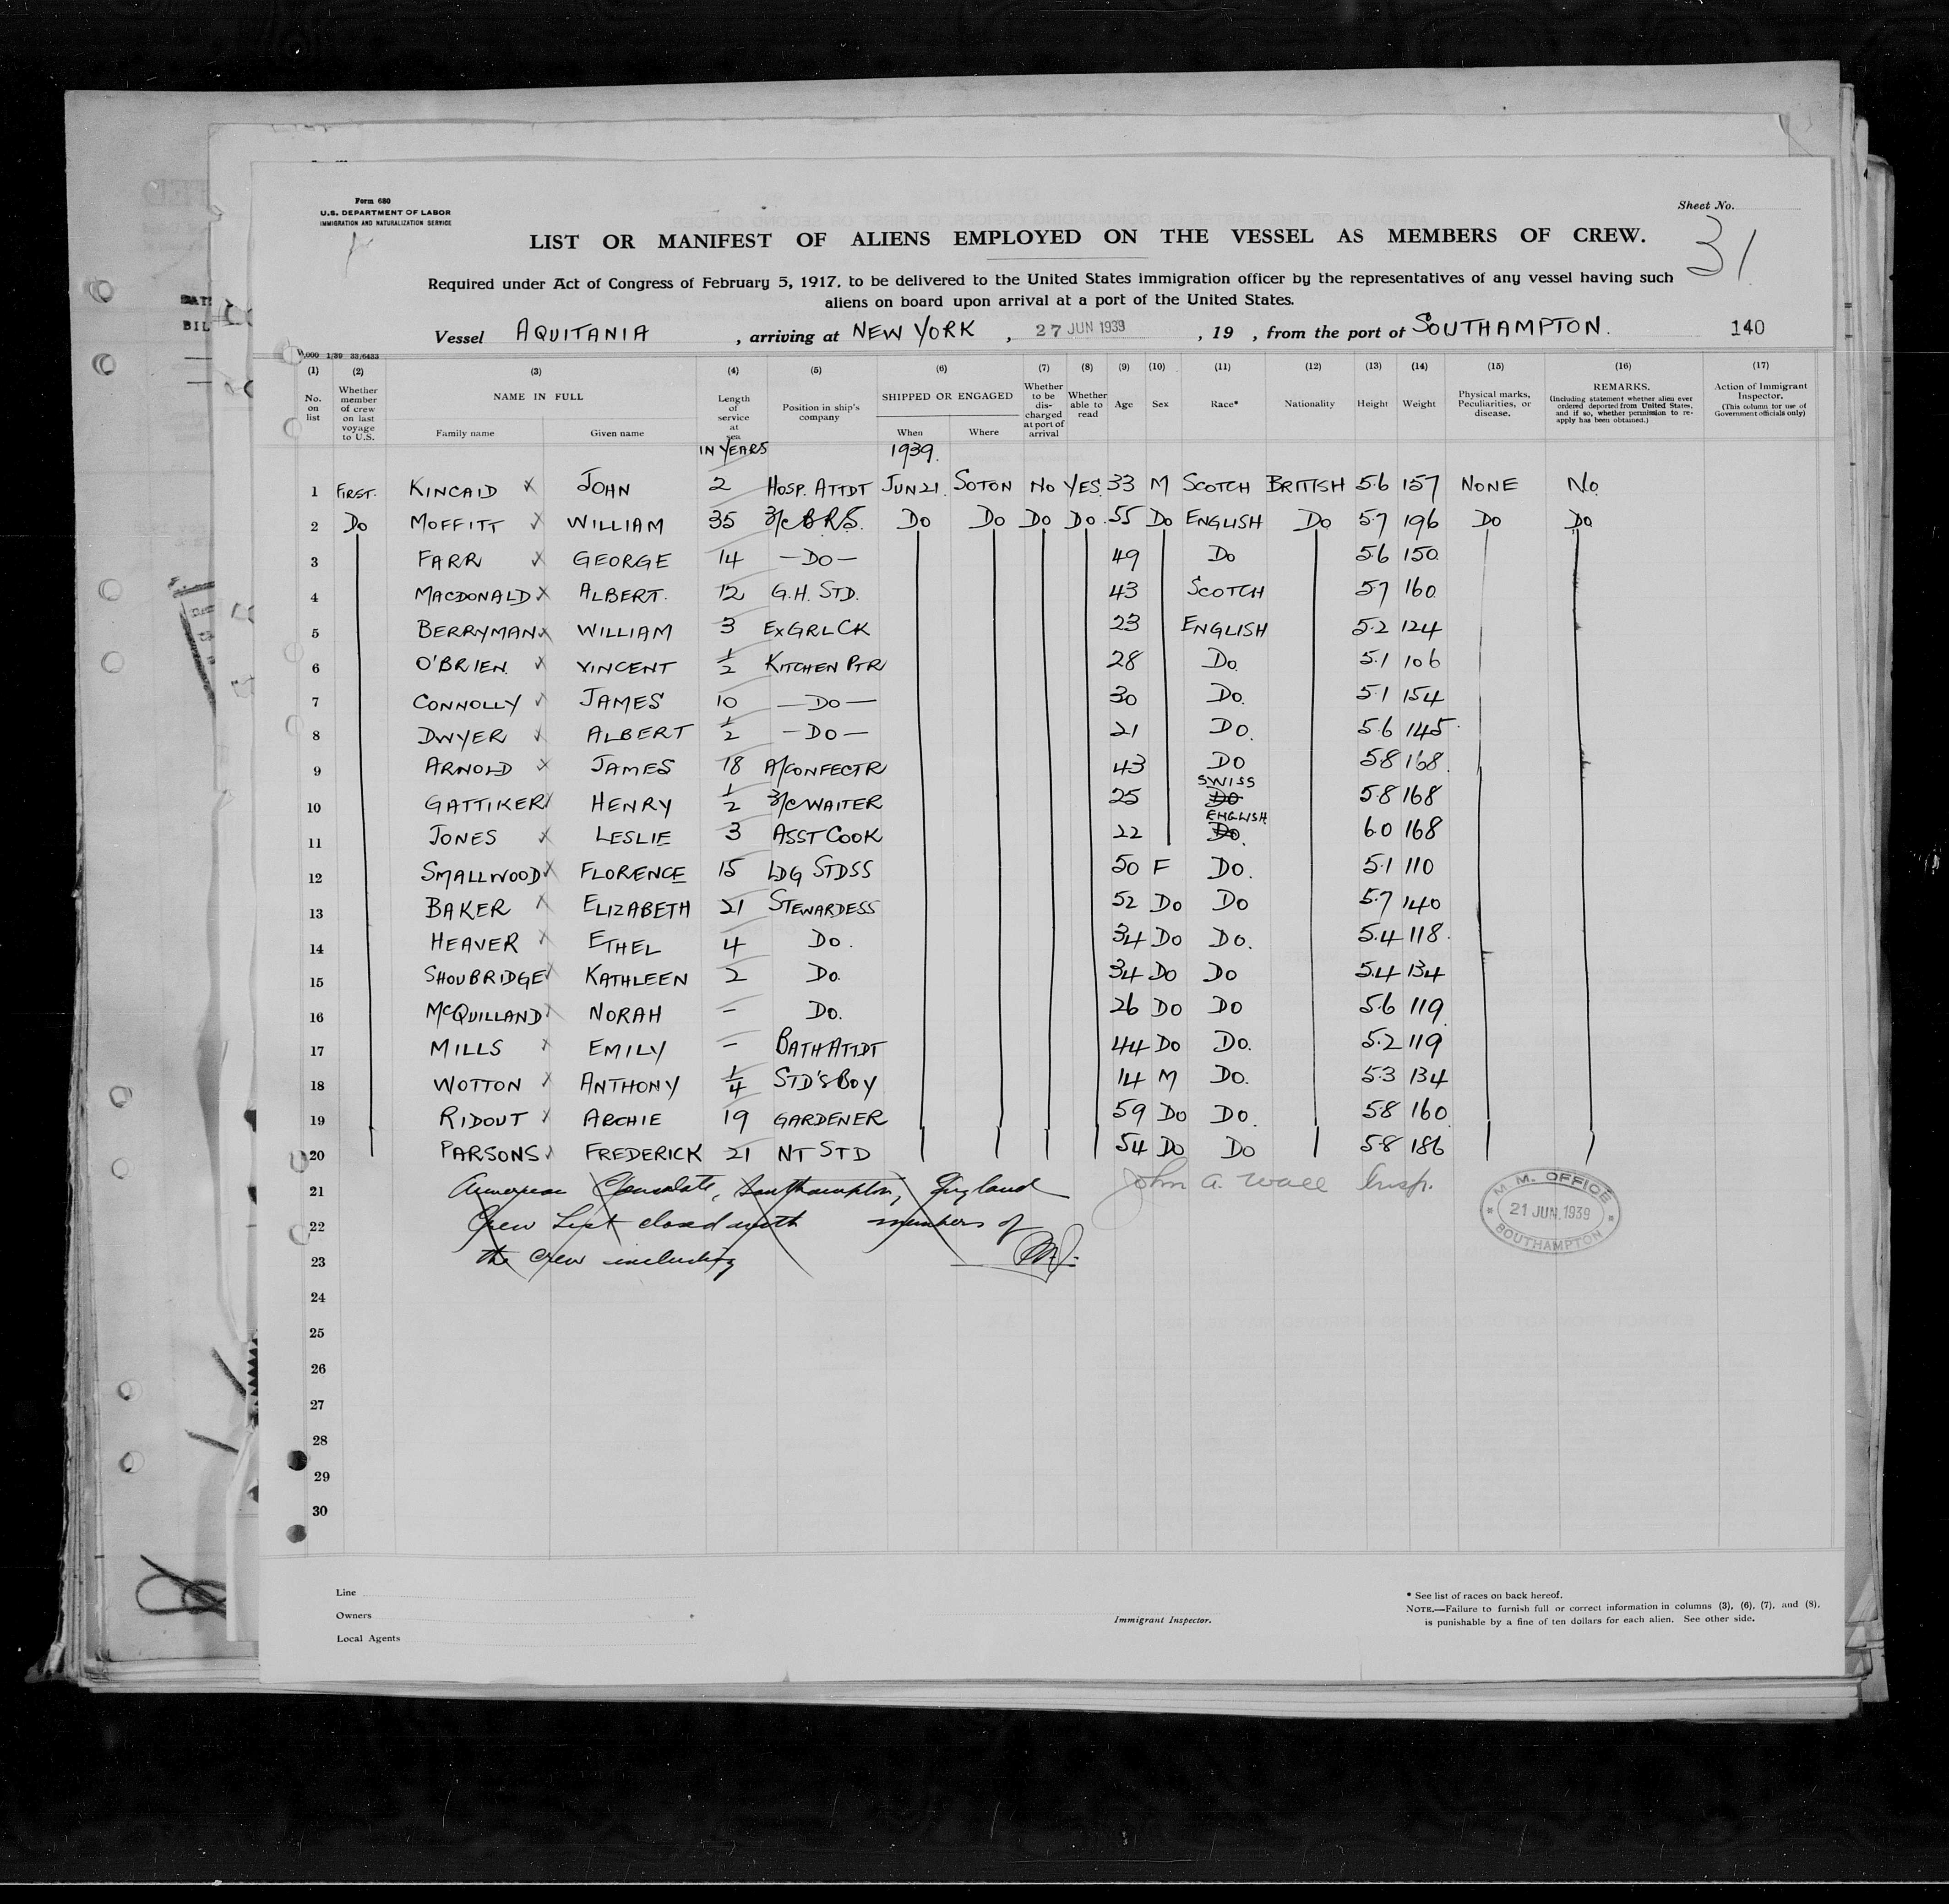 Form 680
U.S. DEPARTMENT OF LABOR
IMMIGRATION AND NATURALIZATION SERVICE
Sheet No.
31
LIST OR MANIFEST OF ALIENS EMPLOYED ON THE VESSEL AS MEMBERS OF CREW.
Required under Act of Congress of February 5, 1917, to be delivered to the United States immigration officer by the representatives of any vessel having such
aliens on board upon arrival at a port of the United States.
Vessel AQUITANIA, arriving at NEW YORK, 27 JUN 1939, 19 , from the port of SOUTHAMPTON. 140
(1) (2) (3) (4) (5) (6) (7) (8) (9) (10) (11) (12) (13) (14) (15) (16) (17)
No. on list
Whether member of crew on last voyage to U.S.
NAME IN FULL
Family name Given name
Length of service at sea
IN YEARS
Position in ship's company
SHIPPED OR ENGAGED
When Where
1939.
Whether to be discharged at port of arrival
Whether able to read
Age
Sex
Race*
Nationality
Height
Weight
Physical marks, Peculiarities, or disease.
REMARKS.
(Including statement whether alien ever ordered deported from United States, and if so, whether permission to re-apply has been obtained.)
Action of Immigrant Inspector.
(This column for use of Government officials only)
1 FIRST. KINCAID JOHN 2 HOSP. ATTDT JUN 21. SOTON NO YES. 33 M SCOTCH BRITISH 5.6 157 NONE NO
2 DO MOFFITT WILLIAM 35 3/C B.R.S. DO DO DO DO. 55 DO ENGLISH DO 5.7 196 DO DO
3 FARR GEORGE 14 —DO— 49 DO 5.6 150
4 MACDONALD ALBERT. 12 G.H. STD. 43 SCOTCH 5.7 160
5 BERRYMAN WILLIAM 3 EX GRL CK 23 ENGLISH 5.2 124
6 O'BRIEN. VINCENT 1/2 KITCHEN PTR 28 DO. 5.1 106
7 CONNOLLY JAMES 10 —DO— 30 DO. 5.1 154
8 DWYER ALBERT 1/2 —DO— 21 DO. 5.6 145
9 ARNOLD JAMES 18 A/CONFECTR 43 DO 5.8 168
10 GATTIKER HENRY 1/2 3/C WAITER 25 SWISS DO 5.8 168
11 JONES LESLIE 3 ASST COOK 22 ENGLISH DO. 6.0 168
12 SMALLWOOD FLORENCE 15 LDG STDSS 50 F DO. 5.1 110
13 BAKER ELIZABETH 21 STEWARDESS 52 DO DO 5.7 140
14 HEAVER ETHEL 4 DO. 34 DO DO. 5.4 118
15 SHOUBRIDGE KATHLEEN 2 DO. 34 DO DO 5.4 134
16 MCQUILLAND NORAH – DO. 26 DO DO 5.6 119
17 MILLS EMILY – BATH ATTDT 44 DO DO. 5.2 119
18 WOTTON ANTHONY 1/4 STD'S BOY 14 M DO. 5.3 134
19 RIDOUT ARCHIE 19 GARDENER 59 DO DO. 5.8 160
20 PARSONS FREDERICK 21 NT STD 54 DO DO 5.8 186
21 American Consulate, Southampton, England John A. Wall Insp.
22 Crew List closed with members of
23 the crew including
24
25
26
27
28
29
30
M. M. OFFICE
21 JUN. 1939
SOUTHAMPTON
Line
Owners
Local Agents
Immigrant Inspector.
* See list of races on back hereof.
NOTE.—Failure to furnish full or correct information in columns (3), (6), (7), and (8),
is punishable by a fine of ten dollars for each alien. See other side.